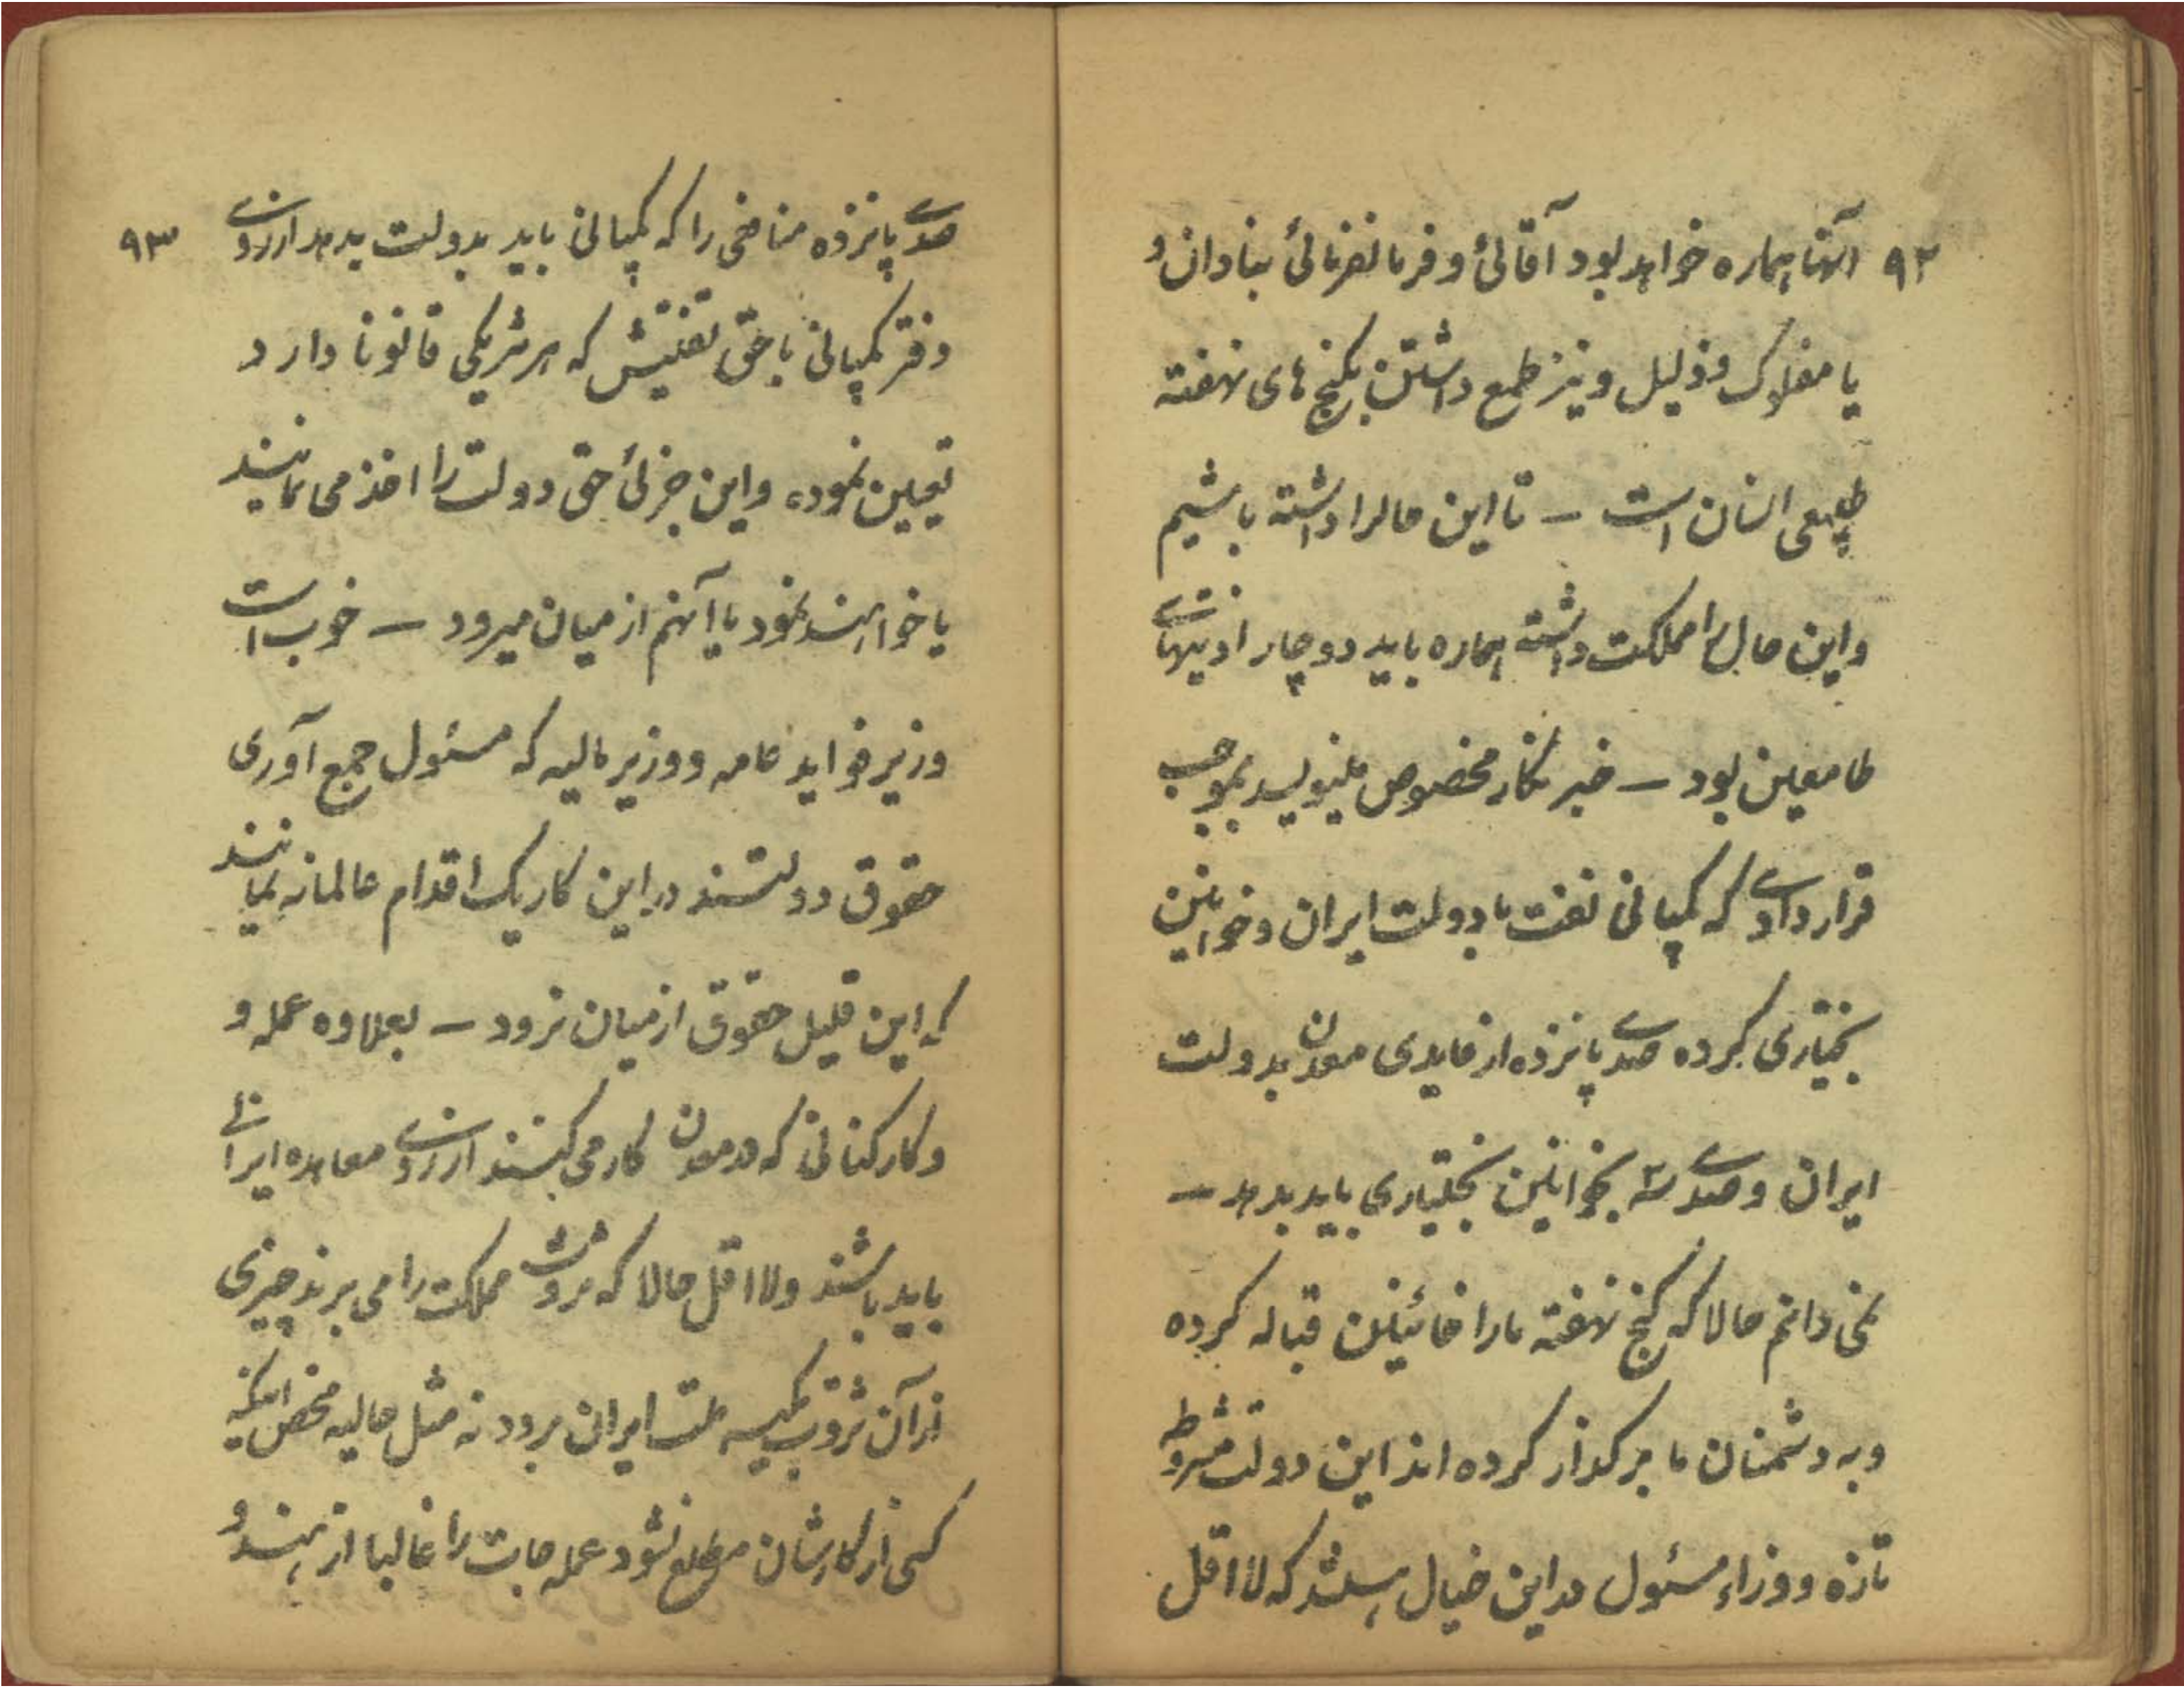 ۹۲ آنها هماره خواهد بود آقائی و فرمانفرمائی بنادان و
یا مفلوک و ذلیل و نیز طمع داشتن بگنج های نهفته
طبیعی انسان است – تا این حالرا داشته باشیم
و این حال را مملکت داشته هماره باید دوچار اذیتهای
طامعین بود – خبرنگار مخصوص مینویسد بموجب
قراردادی که کمپانی نفت با دولت ایران و خوانین
بختیاری کرده صدی پانزده از فایدی معدن بدولت
ایران و صدی سه بخوانین بختیاری باید بدهد –
نمی دانم حالا که گنج نهفته ما را خائینین قباله کرده
و به دشمنان ما برگذار کرده اند این دولت مشروطه
تازه و وزراء مسئول در این خیال هستند که لااقل
۹۳ صدی پانزده منافعی را که کمپانی باید بدولت بدهد از روی
دفتر کمپانی با حق تفتیش که هر شریکی قانونا دارد
تعیین نموده و این جزئی حق دولت را اخذ می نمایند
یا خواهند نمود یا آنهم از میان میرود – خوب است
وزیر فواید عامه و وزیر مالیه که مسئول جمع آوری
حقوق دولتند در این کار یک اقدام عالمانه نمایند
که این قلیل حقوق از میان نرود – بعلاوه عمله و
و کارکنانی که در معدن کار می کنند از روی معاهده ایرانی
باید باشند ولااقل حالا که ثروت مملکت را می برند چیزی
از آن ثروت بکیسه ملت ایران برود نه مثل حالیه محض اینکه
کسی از کارشان مطلع نشود عمله جات را غالبا از هند و